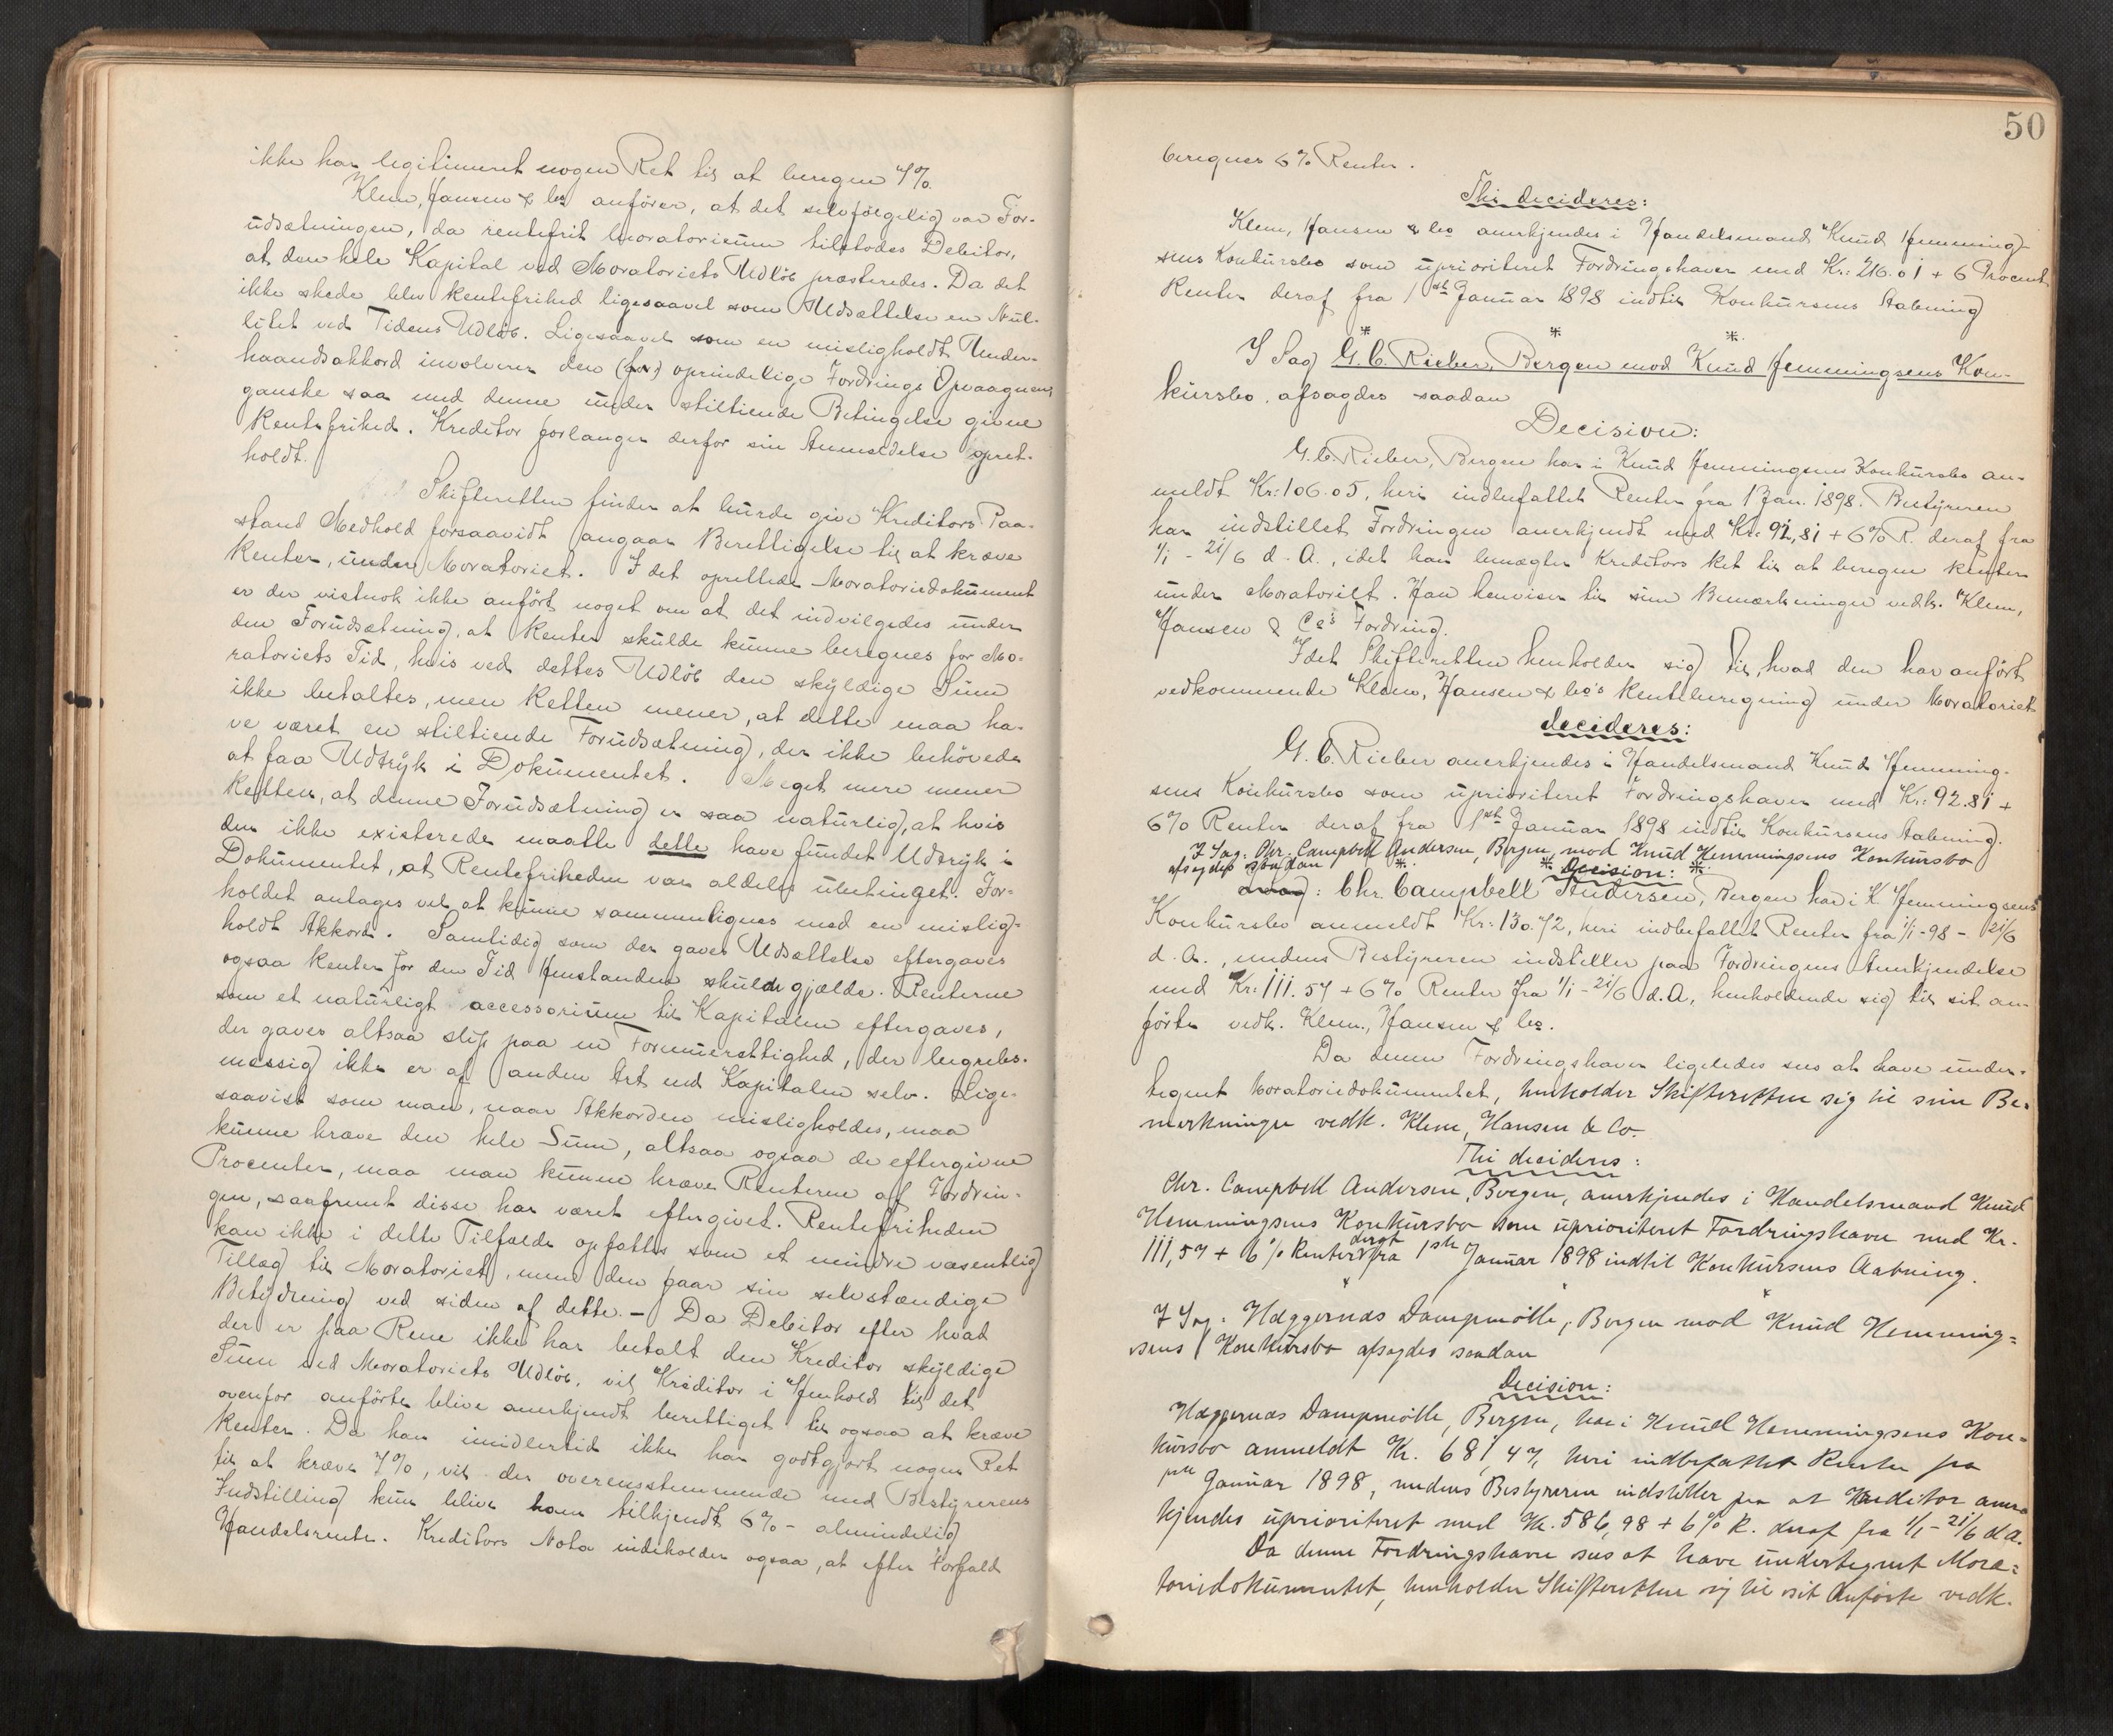 ikke har legitimeret nogen Ret til at beregne 7%.
Klem, Hansen & Co anfører, at det selvfølgelig var For-
udsætningen, da rentefrit Moratorium tilstodes Debitor,
at den hele Kapital ved Moratoriets Udløb præsteredes. Da det
ikke skede blev Rentefrihed ligesaavel som Udsættelse en Nul-
litet ved Tidens Udløb. Ligesaavel som en misligholdt Under-
haandsakkord involverer den (for) oprindelige Fordrings Opvaagnen,
ganske saa med denne under stiltiende Betingelse givne
Rentefrihed. Kreditor forlanger derfor sin Anmeldelse opret-
holdt.
Skifteretten finder at burde give Kreditors Paa-
stand Medhold forsaavidt angaar Berettigelse til at kræve
Renter, under Moratoriet. I det oprettede Moratoriedokument
er der vistnok ikke anført noget om at det indvilgedes under
den Forudsætning, at Renter skulde kunne beregnes for Mo-
ratoriets Tid, hvis ved dettes Udløb den skyldige Sum
ikke betaltes, men Retten mener, at dette maa ha-
ve været en stiltiende Forudsætning, der ikke behøvede
at faa Udtryk i Dokumentet. Meget mere mener
Retten, at denne Forudsætning er saa naturlig, at hvis
den ikke existerede maatte dette have fundet Udtryk i
Dokumentet, at Rentefriheden var aldeles ubetinget. For-
holdet antages vel at kunne sammenlignes med en mislig-
holdt Akkord. Samtidig som der gaves Udsættelse eftergaves
ogsaa Renter for den Tid Henstanden skulde gjælde. Renterne
som et naturligt accessorium til Kapitalen eftergaves,
der gaves altsaa slip paa en Formuerettighed, der begrebs-
mæssig ikke er af anden Art end Kapitalen selv. Lige-
saavist som man, naar Akkorden misligholdes, maa
kunne kræve den hele Sum, altsaa ogsaa de eftergivne
Procenter, maa man kunne kræve Renterne af Fordrin-
gen, saafremt disse har været eftergivet. Rentefriheden
kan ikke i dette Tilfælde opfattes som et mindre væsentlig
Tillæg til Moratoriet, men den faar sin selvstændige
Betydning ved siden af dette. – Da Debitor efter hvad
der er paa Rene ikke har betalt den Kreditor skyldige
Sum ved Moratoriets Udløb, vil Kreditor i Henhold til det
ovenfor anførte blive anerkjendt berettiget til ogsaa at kræve
Renter. Da han imidlertid ikke har godtgjort nogen Ret
til at kræve 7%, vil der overensstemmende med Bestyrerens
Indstilling kun blive ham tilkjendt 6% – almindelig
Handelsrente. Kreditors Nota indeholder ogsaa, at efter Forfald
50
beregnes 6% Renter.
Thi decideres:
Klem, Hansen & Co anerkjendes i Handelsmand Knud Hemming-
sens Konkursbo som uprioriteret Fordringshaver med Kr: 216.01 + 6 Procent
Renter deraf fra 1ste Januar 1898 indtil Konkursens Aabning
* * *
I Sag G. C. Rieber, Bergen mod Knud Hemmingsens Kon-
kursbo, afsagdes saadan
Decision:
G. C. Rieber, Bergen har i Knud Hemmingsens Konkursbo an-
meldt Kr: 106.05, heri indbefattet Renter fra 1 Jan. 1898. Bestyreren
har indstillet Fordringen anerkjendt med Kr: 92,81 + 6% R. deraf fra
1/1 - 21/6 d. A., idet han benægter Kreditors Ret til at beregne Renter
under Moratoriet. Han henviser til sine Bemærkninger vedk. Klem,
Hansen & Co's Fordring.
Idet Skifteretten henholder sig til, hvad den har anført
vedkommende Klem, Hansen & Co's Renteberegning under Moratoriet
decideres:
G. C. Rieber anerkjendes i Handelsmand Knud Hemming-
sens Konkursbo som uprioriteret Fordringshaver med Kr: 92.81 +
6% Renter deraf fra 1ste Januar 1898 indtil Konkursens Aabning.
I Sag: Chr. Campbell Andersen, Bergen, mod Knud Hemmingsens Konkursbo
afsagdes saadan * * Decision: *
Chr. Campbell Andersen, Bergen har i K Hemmingsens
Konkursbo anmeldt Kr: 130.72, heri indbefattet Renter fra 1/1-98 - 21/6
d. A., medens Bestyreren indstiller paa Fordringens Anerkjendelse
med Kr: 111.57 + 6% Renter fra 1/1 - 21/6 d. A, henholdende sig til sit an-
førte vedk. Klem, Hansen & Co.
Da denne Fordringshaver ligeledes sees at have under-
tegnet Moratoriedokumentet, henholder Skifteretten sig til sine Be-
merkninger vedk. Klem, Hansen & Co.
Thi decideres:
Chr. Campbell Andersen, Bergen, anerkjendes i Handelsmand Knud
Hemmingsens Konkursbo som uprioriteret Fordringshaver med Kr.
111,57 + 6% Renter deraf fra 1ste Januar 1898 indtil Konkursens Aabning.
* *
I Sag: Hæggernæs Dampmølle, Bergen mod Knud Hemming-
sens Konkursbo afsagdes saadan
Decision:
Hæggernæs Dampmølle, Bergen, har i Knud Hemmingsens Kon-
kursbo anmeldt Kr. 681,47, heri indbefattet Renter fra
1ste Januar 1898, medens Bestyreren indstiller paa at Kreditor aner-
kjendes uprioriteret med Kr. 586,98 + 6% R. deraf fra 1/1 - 21/6 d A.
Da denne Fordringshaver sees at have undertegnet Mora-
toriedokumentet, henholder Skifteretten sig til sit Anførte vedk.